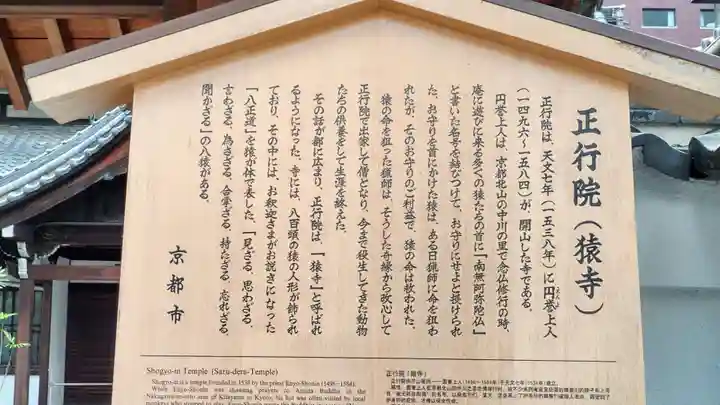 正行院（猿寺）
正行院は、天文七年（一五三八年）に円誉上人
（一四九六〜一五八四）が、開山した寺である。
円誉上人は、京都北山の中川の里で念仏修行の時、
庵に遊びに来る多くの猿たちの首に「南無阿弥陀仏」
と書いた名号を結びつけて、お守りにせよと授けられ
た。お守りを首にかけた猿は、ある日猟師に命を狙わ
れたが、そのお守りのご利益で、猿の命は救われた。
猿の命を狙った猟師は、そうした奇縁から改心して
正行院で出家して僧となり、今まで殺生してきた動物
たちの供養をして生涯を終えた。
その話が都に広まり、正行院は、「猿寺」と呼ばれ
るようになった。寺には、八百頭の猿の人形が飾られ
ており、その中には、お釈迦さまがお説きになった
「八正道」を猿が体で表した、「見ざる、思わざる、
言わざる、為さざる、合掌ざる、持たざる、忘れざる、
聞かざる」の八猿がある。
京都市
Shogyo-in Temple (Saru-dera-Temple)
Shogyo-in is a temple founded in 1538 by the priest Enyo-Shonin (1496 - 1584).
When Enyo-Shonin was chanting prayers to Amida Buddha in the
Nakagawa-no-sato area of Kitayama in Kyoto, his hut was often visited by local
正行院